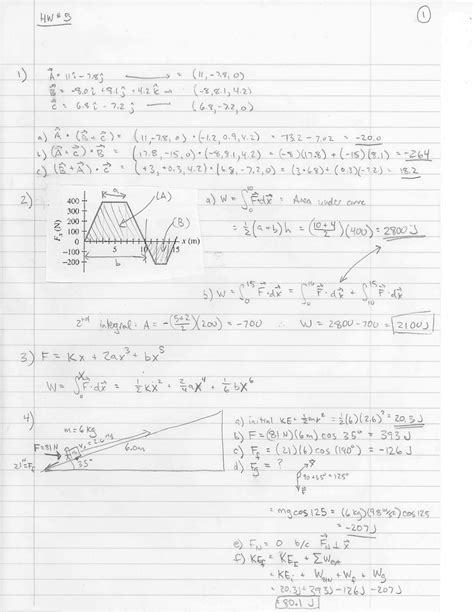 HW #5
1
1) A = 11i - 7.8j → = (11, -7.8, 0)
B = -8.0i + 8.1j + 4.2k → (-8, 8.1, 4.2)
C = 6.8i - 7.2j → (6.8, -7.2, 0)
a) A · (B + C) = (11, -7.8, 0) · (-1.2, 0.9, 4.2) = -13.2 - 7.02 = -20.0
b) (A + C) · B = (17.8, -15, 0) · (-8, 8.1, 4.2) = (-8)(17.8) + (-15)(8.1) = -264
c) (B + A) · C = (+3, +0.3, 4.2) · (6.8, -7.2, 0) = (3·6.8) + (0.3)(-7.2) = 18.2
2)
400
300
200
100
0
-100
-200
Fx (N)
5
10
15
x (m)
a
b
(A)
(B)
a) W = ∫₀¹⁰ F·dx = Area under curve
= ½(a+b)h = (10+4 / 2)(400) = 2800J
b) W = ∫₀¹⁵ F·dx = ∫₀¹⁰ F·dx + ∫₁₀¹⁵ F·dx
2nd integral: A = -(5+2 / 2)(200) = -700 ∴ W = 2800 - 700 = 2100J
3) F = Kx + 2ax³ + bx⁵
W = ∫₀ˣ F·dx = ½kx² + 2/4 ax⁴ + 1/6 bx⁶
4)
m = 6kg
F = 81N
6.0m
35°
a) initial KE = ½mv² = ½(6)(2.6)² = 20.3J
b) F = (81N)(6m) cos 35° = 393J
c) Ff = (21)(6) cos (180°) = -126J
d) Fg = ?
90+35° = 125°
= mg cos 125 = (6kg)(9.8m/s²) cos(125°)
= -207J
e) FN = 0 b/c FN ⊥ x
f) KEf = KEi + ΣWext
= KEi + W81N + Wf + Wg
= 20.3J + 393J - 126J - 207J
= 80.1J